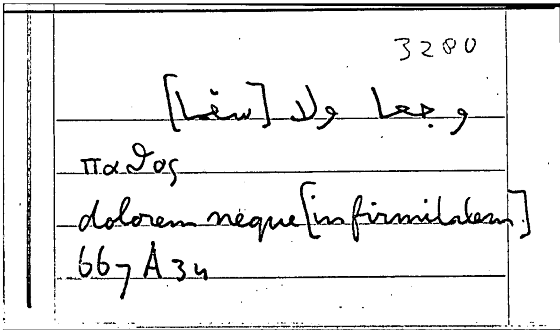 3280
وجعا ولا [سقما]
παϑος
dolorem neque [infirmitatem]
667 A 34